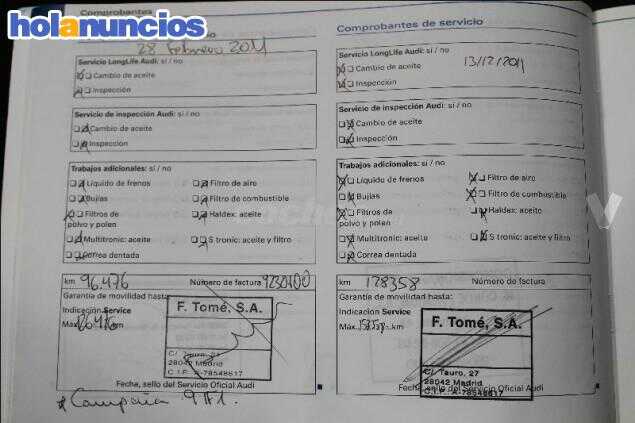 holanuncios
Comprobantes
28 Febrero 2011
Servicio LongLife Audi: sí / no
Cambio de aceite
Inspección
Servicio de inspección Audi: sí / no
Cambio de aceite
Inspección
Trabajos adicionales: sí / no
Líquido de frenos
Filtro de aire
Bujías
Filtro de combustible
Filtros de
polvo y polen
Haldex: aceite
Multitronic: aceite
S tronic: aceite y filtro
Correa dentada
km 96.476 Número de factura 9230100
Garantía de movilidad hasta:
Indicación Service
Máx. 126476 km
F. Tomé, S.A.
C/ Tauro, 27
28042 Madrid
C.I.F. A-78548617
Fecha, sello del Servicio Oficial Audi
Comprobantes de servicio
Servicio LongLife Audi: sí / no
13/12/2011
Cambio de aceite
Inspección
Servicio de inspección Audi: sí / no
Cambio de aceite
Inspección
Trabajos adicionales: sí / no
Líquido de frenos
Filtro de aire
Bujías
Filtro de combustible
Filtros de
polvo y polen
Haldex: aceite
Multitronic: aceite
S tronic: aceite y filtro
Correa dentada
km 128358 Número de factura
Garantía de movilidad hasta:
Indicación Service
Máx. 158358 km
F. Tomé, S.A.
C/ Tauro, 27
28042 Madrid
C.I.F. A-78548617
Fecha, sello del Servicio Oficial Audi